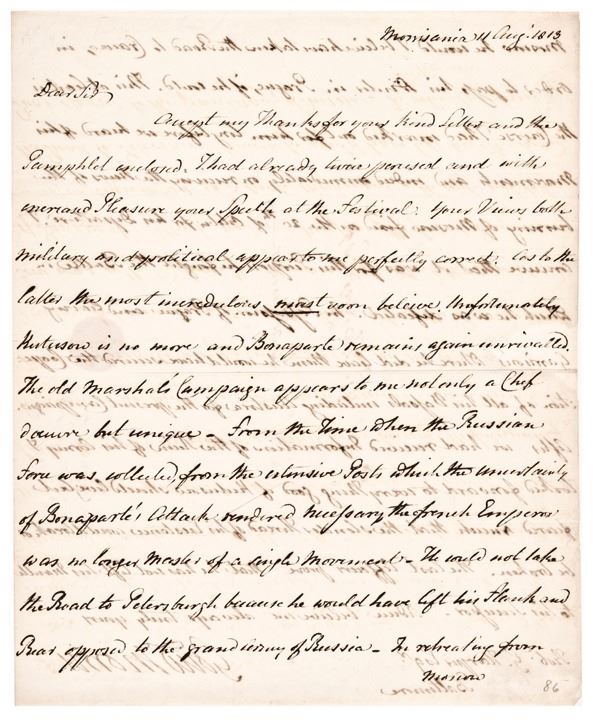 Morrisania 11 Aug.t 1813
Dear Sir,
Accept my Thanks for your kind Letter and the
Pamphlet enclosed. I had already twice perused and with
increased Pleasure your Speech at the Festival. Your Views both
military and political appear to me perfectly correct. As to the
latter the most incredulous must soon beleive. Unfortunately
Kutusow is no more and Bonaparte remains again unrivalled.
The old Marshal's Campaign appears to me not only a Chef
d'œuvre but unique – From the Time when the Russian
Force was collected from the extensive Posts which the uncertainty
of Bonaparte's Attack rendered necessary the french Emperor
was no longer Master of a single Movement – He could not take
the Road to Petersburgh because he would have left his Flank and
Rear opposed to the grand Army of Russia – In retreating from
Moscow
86